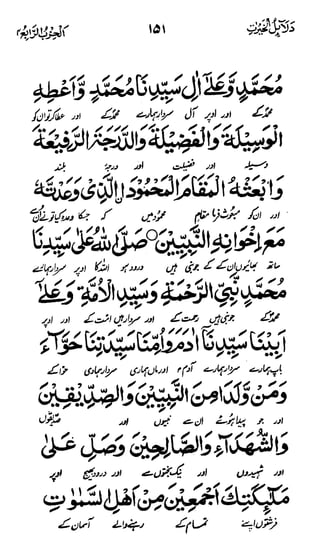 دلائل الخیرات ۱۵۱ الحزب الرابع
مُحَمَّدٍ وَّعَلٰٓى اٰلِ سَيِّدِنَا مُحَمَّدٍ وَّاَعْطِهِ
محمدؐ کے اور اوپر آل سردار ہمارے محمدؐ کے اور عطا کر تو ان کو
الْوَسِيْلَةَ وَالْفَضِيْلَةَ وَالدَّرَجَةَ الرَّفِيْعَةَ
وسیلہ اور فضیلت اور درجۂ بلند
وَابْعَثْهُ الْمَقَامَ الْمَحْمُوْدَ ۨالَّذِىْ وَعَدْتَّهٗ
اور ان کو مبعوث فرما مقام محمود میں کہ جسکا وعدہ کیا تونے ان سے
مَعَ اِخْوَانِهِ النَّبِيّٖنَ ○ صَلَّى اللّٰهُ عَلٰى سَيِّدِنَا
ساتھ بھائیوں ان کے کے جو نبی ہیں درود ہو اللہ کا اوپر سردار ہمارے
مُحَمَّدٍ نَّبِىِّ الرَّحْمَةِ وَسَيِّدِ الْاُمَّةِ وَعَلٰٓى
محمدؐ کے جو نبی ہیں رحمت کے اور سردار ہیں امت کے اور اوپر
اَبِيْنَا سَيِّدِنَآ اٰدَمَ وَاُمِّنَا سَيِّدَتِنَا حَوَّآءَ
باپ ہمارے سردار ہمارے آدمؑ اور ماں ہماری سردار ہماری حوا کے
وَمَنْ وَّلَدَا مِنَ النَّبِيّٖنَ وَالصِّدِّيْقِيْنَ
اور جو پیدا ہوئے ان سے نبیوں اور صدیقوں
وَالشُّهَدَآءِ وَالصَّالِحِيْنَ وَصَلِّ عَلٰى
اور شہیدوں اور نیک بختوں سے اور درود بھیج اوپر
مَلٰٓئِكَتِكَ اَجْمَعِيْنَ مِنْ اَهْلِ السَّمٰوٰتِ
فرشتوں اپنے تمام کے رہنے والے آسمان کے